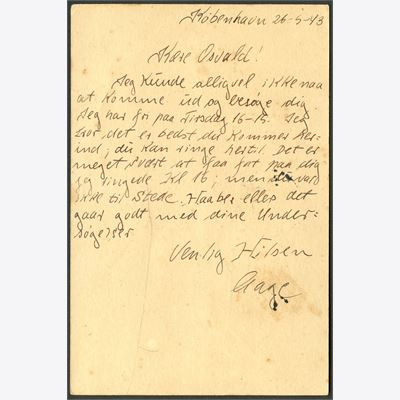 København 26-5-43
Kære Osvald!
Jeg kunde alligvel ikke naa
at komme ud og besøge dig.
Jeg har fri paa Tirsdag 16-15. Jeg
tror det er bedst du kommer her-
ind; du kan ringe hertil. Det er
meget svært at faa fat paa dig
jeg ringede Kl 16; men var
ikke til Stede. Haaber ellers det
gaar godt med dine Under-
søgelser
Venlig Hilsen
Aage